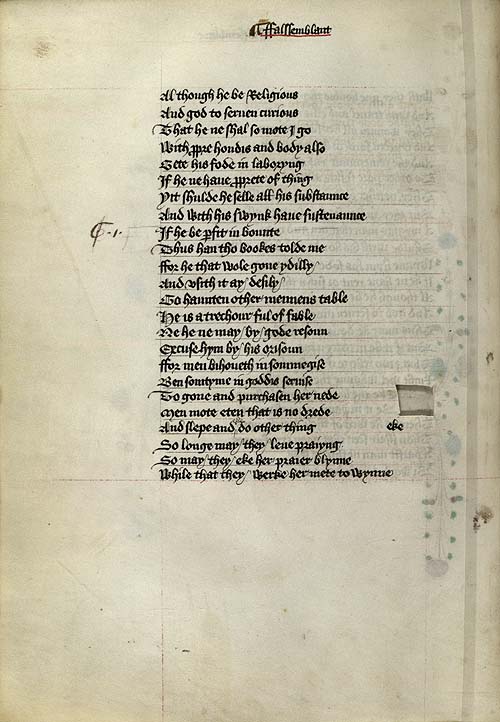 ffalssemblant
Al though he be Religious
And god to seruen curious
That he ne shal so mote I go
With ꝓpre hondis and body also
Gete his fode in laboryng
If he ne haue ꝓprete of thing
Yit shulde he selle all his substaunce
And with his swynk haue sustenaunce
If he be ꝑfit in bounte
Thus han tho bookes tolde me
ffor he that wole gone ydilly
And vsith it ay desily
To haunten other mennens table
He is a trechour ful of fable
Ne he ne may by gode resoun
Excuse hym by his orisoun
ffor men bihoueth in somme gise
Ben somtyme in goddis seruise
To gone and purchasen her nede
Men mote eten that is no drede
And slepe and do other thing eke
So longe may they leue praiyng
So may they eke her praier blynne
While that they werke her mete to wynne